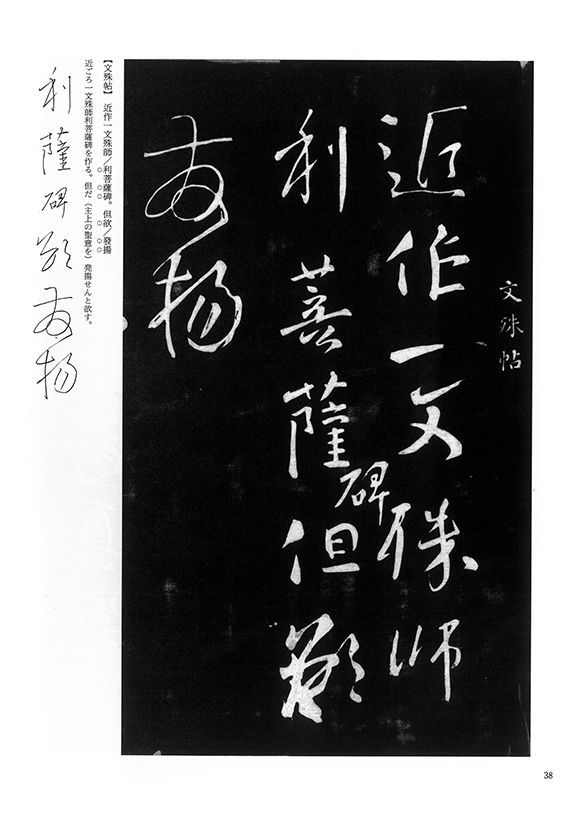 文殊帖
近作一文殊師
利菩薩碑但欲
發揚
【文殊帖】 近作一文殊師／利菩薩碑。但欲／發揚
近ごろ一文殊師利菩薩碑を作る。但だ（主上の聖意を）発揚せんと欲す。
利薩碑欲發揚
38